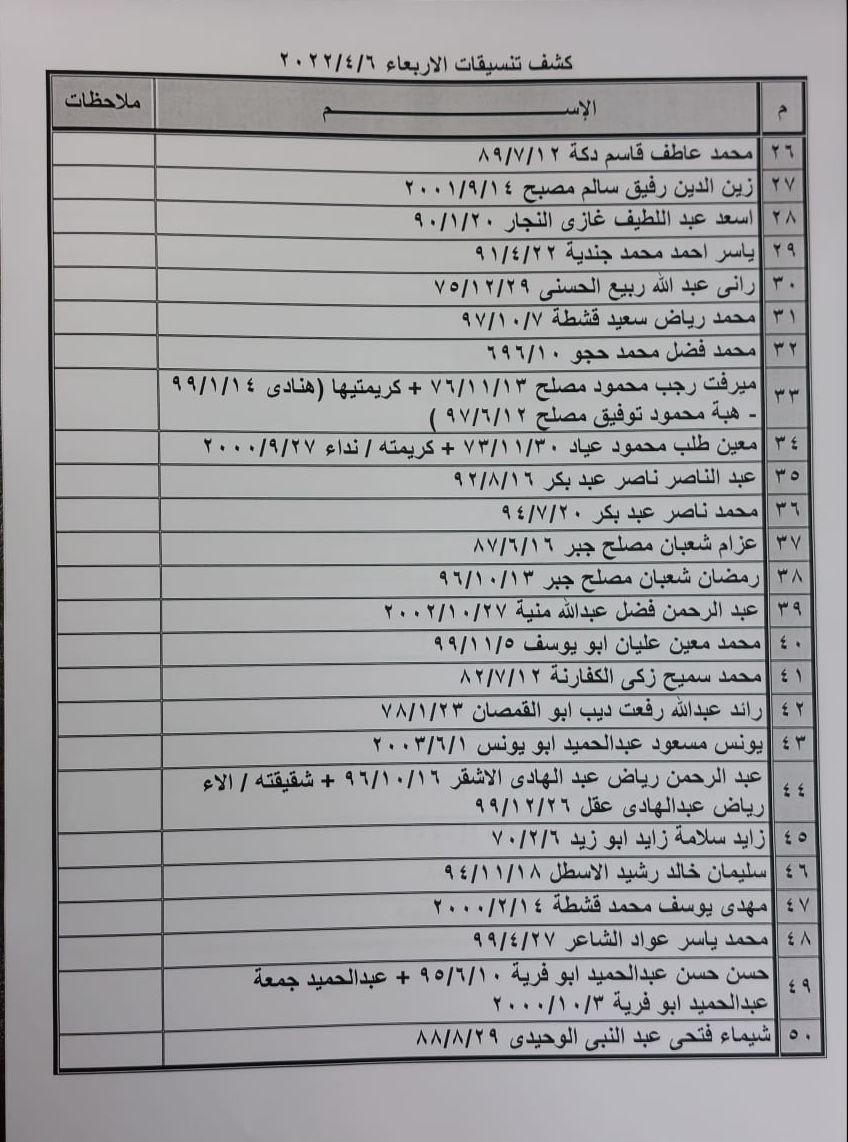 كشف تنسيقات الاربعاء ٢٠٢٢/٤/٦
م الإســـــــم ملاحظات
٢٦ محمد عاطف قاسم دكة ٨٩/٧/١٢
٢٧ زين الدين رفيق سالم مصبح ٢٠٠١/٩/١٤
٢٨ اسعد عبد اللطيف غازى النجار ٩٠/١/٢٠
٢٩ ياسر احمد محمد جندية ٩١/٤/٢٢
٣٠ رانى عبد الله ربيع الحسنى ٧٥/١٢/٢٩
٣١ محمد رياض سعيد قشطة ٩٧/١٠/٧
٣٢ محمد فضل محمد حجو ٦٩٦/١٠
٣٣ ميرفت رجب محمود مصلح ٧٦/١١/١٣ + كريمتيها (هنادى ٩٩/١/١٤
- هبة محمود توفيق مصلح ٩٧/٦/١٢ )
٣٤ معين طلب محمود عياد ٧٣/١١/٣٠ + كريمته / نداء ٢٠٠٠/٩/٢٧
٣٥ عبد الناصر ناصر عبد بكر ٩٢/٨/١٦
٣٦ محمد ناصر عبد بكر ٩٤/٧/٢٠
٣٧ عزام شعبان مصلح جبر ٨٧/٦/١٦
٣٨ رمضان شعبان مصلح جبر ٩٦/١٠/١٣
٣٩ عبد الرحمن فضل عبدالله منية ٢٠٠٢/١٠/٢٧
٤٠ محمد معين عليان ابو يوسف ٩٩/١١/٥
٤١ محمد سميح زكى الكفارنة ٨٢/٧/١٢
٤٢ رائد عبدالله رفعت ديب ابو القمصان ٧٨/١/٢٣
٤٣ يونس مسعود عبدالحميد ابو يونس ٢٠٠٣/٦/١
٤٤ عبد الرحمن رياض عبد الهادى الاشقر ٩٦/١٠/١٦ + شقيقته / الاء
رياض عبدالهادى عقل ٩٩/١٢/٢٦
٤٥ زايد سلامة زايد ابو زيد ٧٠/٢/٦
٤٦ سليمان خالد رشيد الاسطل ٩٤/١١/١٨
٤٧ مهدى يوسف محمد قشطة ٢٠٠٠/٢/١٤
٤٨ محمد ياسر عواد الشاعر ٩٩/٤/٢٧
٤٩ حسن حسن عبدالحميد ابو فرية ٩٥/٦/١٠ + عبدالحميد جمعة
عبدالحميد ابو فرية ٢٠٠٠/١٠/٣
٥٠ شيماء فتحى عبد النبى الوحيدى ٨٨/٨/٢٩